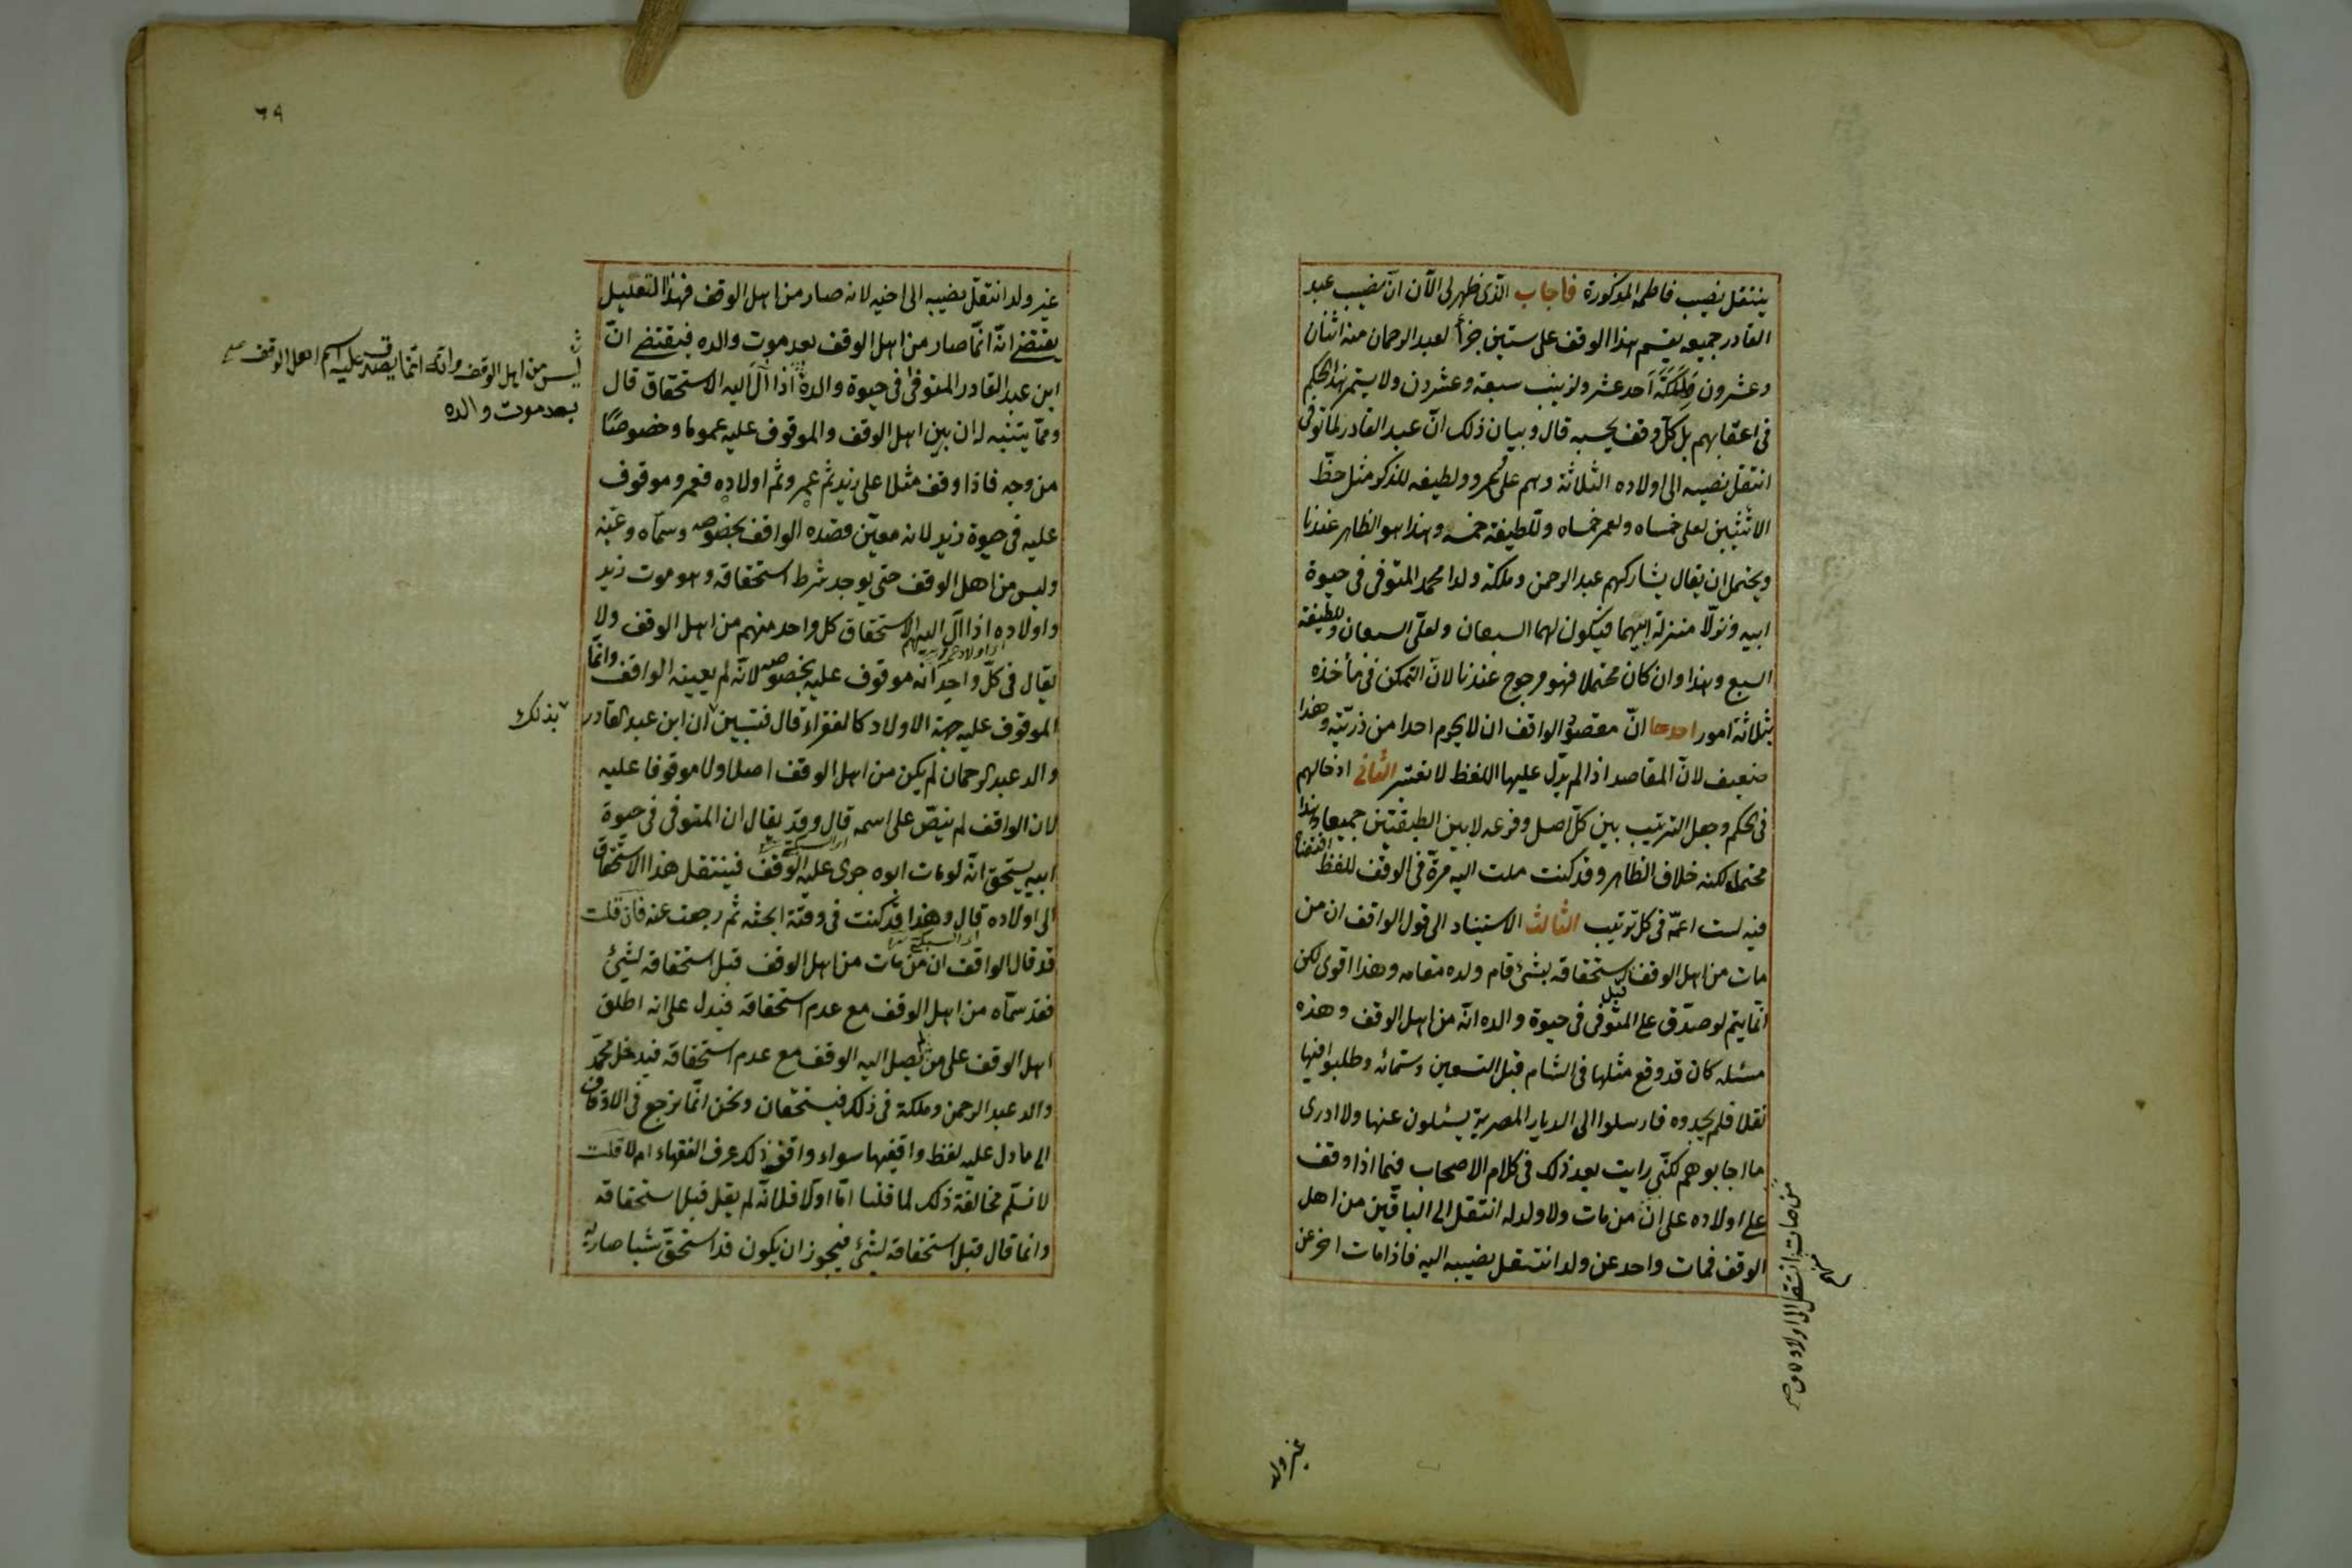 ينتقل نصيب فاطمة المذكورة فأجاب الذى ظهر لى الآن انّ نصيب عبد
القادر جميعه يقسم هذا الوقف على ستين جزأ لعبد الرحمان منه اثنان
وعشرون ولملكة احد عشر ولزينب سبعة وعشرون ولا يستمر هذا الحكم
فى اعقابهم بل كلّ وقف بحسبه قال وبيان ذلك انّ عبد القادر لما توفى
انتقل نصيبه الى اولاده الثلاثة وهم على وعمرو ولطيفه للذكر مثل حظّ
الانثيين لعلى خمساه ولعمر خمساه وللطيفة خمسه وهذا هو الظاهر عندنا
ويحتمل ان يقال يشاركهم عبد الرحمن وملكة ولدا محمد المتوفى فى حيوة
ابيه ونزلا منزلة ابيهما فيكون لهما السبعان ولعلى السبعان وللطيفة
السبع وهذا وان كان محتملا فهو مرجوح عندنا لانّ التمكن فى مأخذه
بثلاثة امور احدها انّ مقصود الواقف ان لا يحرم احدا من ذريّته وهذا
ضعيف لانّ المقاصد اذا لم يدلّ عليها اللفظ لا تعتبر الثانى ادخالهم
فى الحكم وجعل الترتيب بين كلّ اصل وفرعه لا بين الطبقتين جميعا وهذا
محتمل لكنه خلاف الظاهر وقد كنت ملت اليه مرّة فى الوقف للفظ اقتضاه
فيه لست اعمّه فى كل ترتيب الثالث الاستناد الى قول الواقف ان من
مات من اهل الوقف قبل استحقاقه بشئ قام ولده مقامه وهذا اقوى لكن
انّما يتم لو صدّق على المتوفى فى حيوة والده انّه من اهل الوقف وهذه
مسئله كان قد وقع مثلها فى الشام قبل التسعين وستمائه وطلبوا فيها
نقلا فلم يجدوه فارسلوا الى الديار المصرية يسئلون عنها ولا ادرى
ما اجابوهم لكنّى رايت بعد ذلك فى كلام الاصحاب فيما اذا وقف
على اولاده على انّ من مات ولا ولد له انتقل الى الباقين من اهل
الوقف فمات واحد عن ولد انتقل نصيبه اليه فاذا مات اخر عن
من مات انتقل الى اولاده ومن
غير ولد
٦٩
غير ولد انتقل نصيبه الى اخيه لانه صار من اهل الوقف فهذا التعليل
يقتضى انّه انّما صار من اهل الوقف بعد موت والده فيقتضى انّ
ابن عبد القادر المتوفى فى حيوة والده اذا آل اليه الاستحقاق قال
وممّا يتنبه له ان بين اهل الوقف والموقوف عليه عموما وخصوصًا
من وجه فاذا وقف مثلا على زيد ثم عمرو ثم اولاده فعمرو موقوف
عليه فى حيوة زيد لانه معيّن قصده الواقف بخصوصه وسمّاه وعيّنه
وليس من اهل الوقف حتى يوجد شرط استحقاقه وهو موت زيد
واولاده اذا آل اليهم الاستحقاق كل واحد منهم من اهل الوقف ولا
يقال فى كلّ واحد انه موقوف عليه بخصوصه لانّه لم يعينه الواقف وانّما
الموقوف عليه جهة الاولاد كالفقراء قال فتبين ان ابن عبد القادر
والد عبد الرحمان لم يكن من اهل الوقف اصلا ولا موقوفا عليه
لان الواقف لم ينصّ على اسمه قال وقد يقال ان المتوفى فى حيوة
ابيه يستحق انّه لو مات ابوه جرى عليه الوقف فينتقل هذا الاستحقاق
الى اولاده قال وهذا قد كنت فى وقت ابحثه ثم رجعت عنه فان قلت
قد قال الواقف ان من مات من اهل الوقف قبل استحقاقه لشئ
فقد سمّاه من اهل الوقف مع عدم استحقاقه فيدل على انه اطلق
اهل الوقف على من لم يصل اليه الوقف مع عدم استحقاقه فيدخل محمّد
والد عبد الرحمن وملكة فى ذلك فيستحقان ونحن انّما نرجع فى الاوقاف
الى ما دل عليه لفظ واقفيها سواء وافق ذلك عرف الفقهاء ام لا قلت
لا نسلّم مخالفة ذلك لما قلنا امّا اوّلا فلانّه لم يقل قبل استحقاقه
وانما قال قبل استحقاقه لشئ فيجوز ان يكون قد استحقّ شيئا صار به
ليس من اهل الوقف وانه انّما يصدق عليه اسم اهل الوقف
بعد موت والده
بذلك